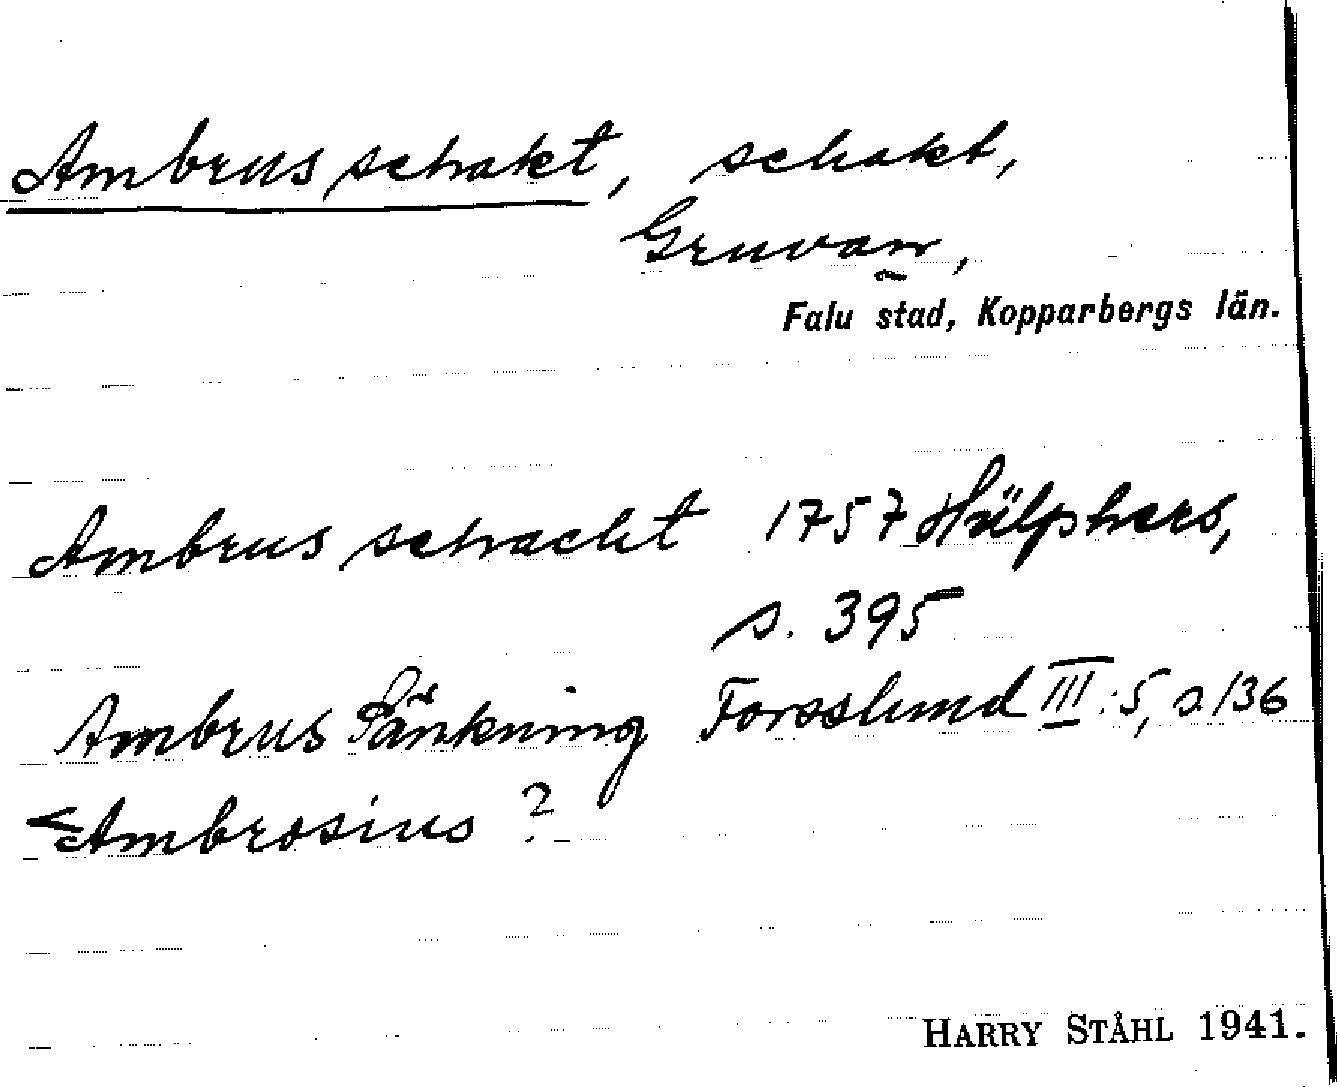 Ambrus schakt, schakt,
Gruvan,
Falu stad, Kopparbergs län.
Ambrus schacht 1757 Hülphers,
s. 395
Ambrus Sänkning Forsslund III:5, s. 136
< Ambrosius ?
HARRY STÅHL 1941.